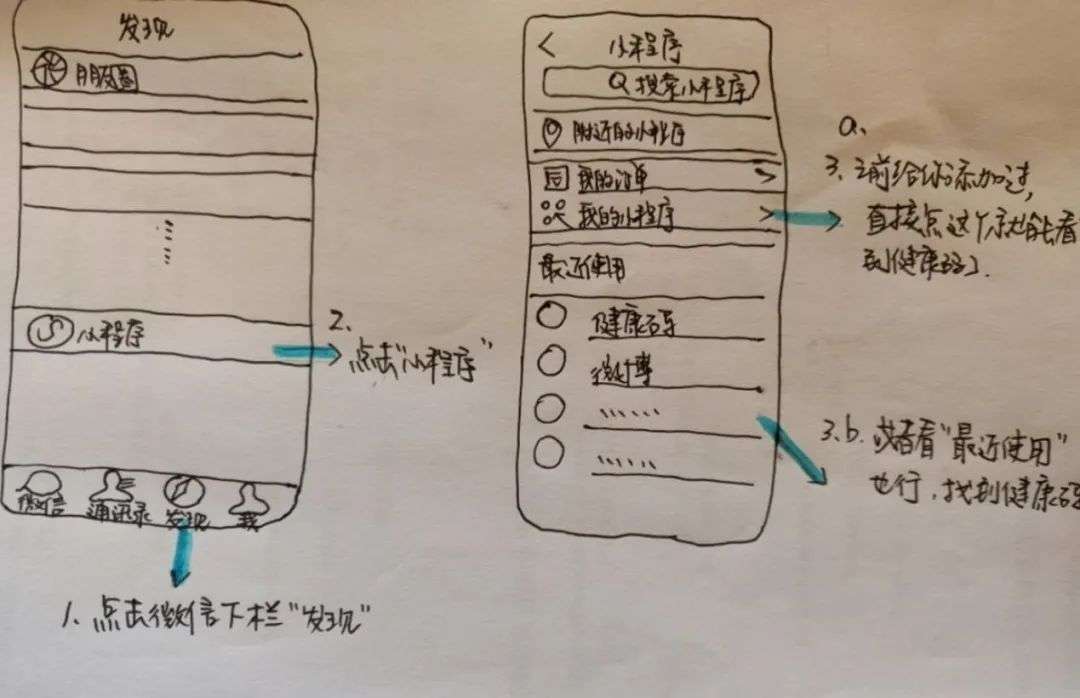 发现
朋友圈
小程序
微信 通讯录 发现 我
1. 点击微信下栏“发现”
2.
点击“小程序”
<
小程序
搜索小程序
附近的小程序
我的订单 >
我的小程序 >
最近使用
健康码
微博
......
......
a.
3. 之前给你添加过,
直接点这个就能看
到健康码了.
3.b. 或者看“最近使用”
也行, 找到健康码